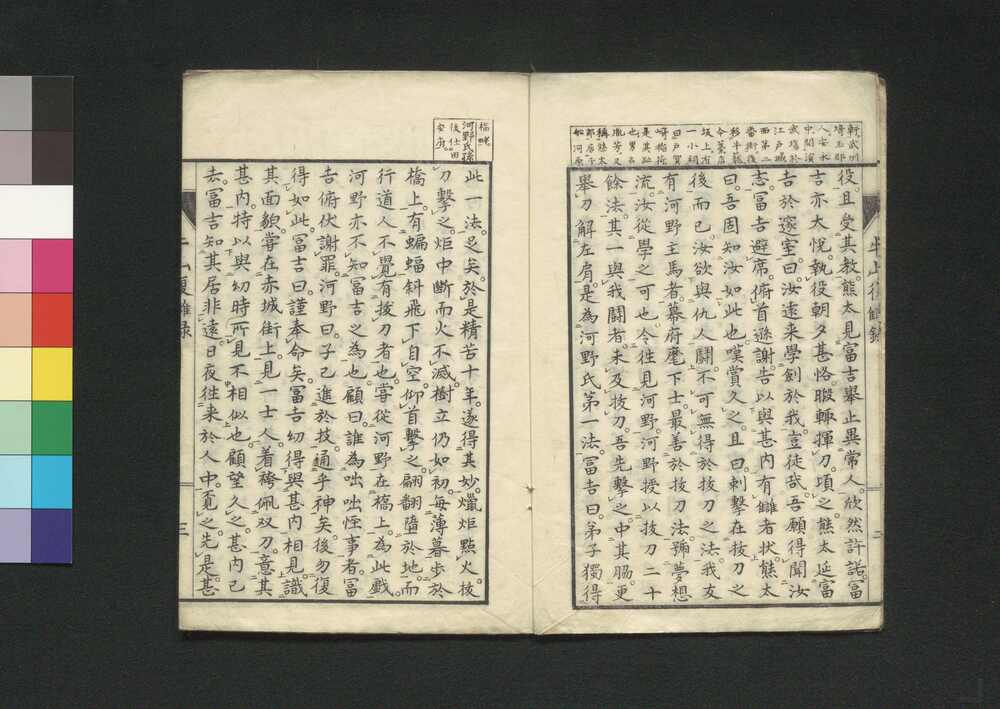 役。且受其教。熊太見富吉舉止異常人。欣然許諾。富
吉亦大悅。執役朝夕甚恪。暇輙揮刀。頃之熊太延富
吉於邃室。曰。汝遠来學劍於我。豈徒哉。吾願得聞汝
志。冨吉避席。俯首遜謝。告以與甚内有讎者狀。熊太
曰。吾固知汝如此也。嘆賞久之。且曰。刺擊在拔刀之
後而已。汝欲與仇人鬪。不可無得於拔刀之法。我友
有河野主馬者。幕府麾下士。最善於拔刀法。號夢想
流。汝從學之可也。令徃見河野。河野授以拔刀二十
餘法。其一與我鬪者。未及拔刀。吾先擊之中其腸。更
舉刀解左肩。是為河野氏第一法。冨吉曰。弟子獨得
稿畯
河野氏孫
後仕田
安府
此一法。足矣。於是精苦十年。遂得其妙。爞炬㸃火。拔
刀擊之。炬中斷而火不滅。樹立仍如初。每薄暮歩於
橋上。有蝙蝠斜飛下自空。仰首擊之。翩翻墮於地。而
行道人不覺有拔刀者也。嘗從河野在橋上。為此戲。
河野亦不知冨吉之為也。顧曰。誰為咄咄怪事者。冨
吉俯伏謝罪。河野曰。子已進於技。通乎神矣。後勿復
得如此。冨吉曰。謹奉命矣。冨吉幼得與甚内相見。識
其面貌。嘗在赤城街上。見一士人。着袴佩双刀。意其
甚内。特以與幼時所見不相似也。顧望久之。甚内已
去。冨吉知其居非遠。日夜徃来於人中。覓之。先是甚
三